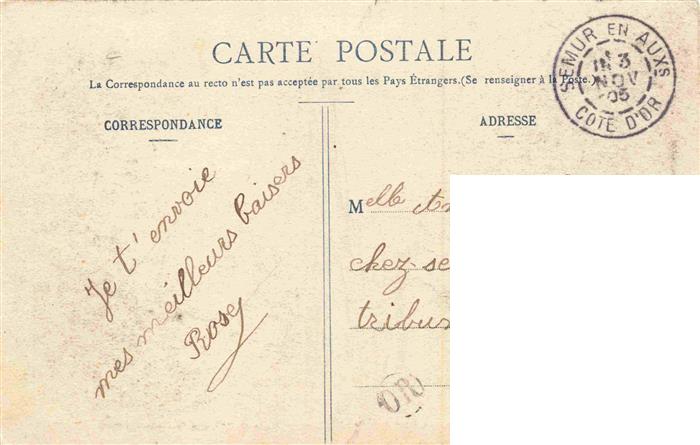 CARTE POSTALE
La Correspondance au recto n'est pas acceptée par tous les Pays Étrangers.(Se renseigner à la Poste.)
SEMUR EN AUXS
3
NOV
05
COTE D'OR
CORRESPONDANCE
Je t'envoie
mes meilleurs baisers
Rosey
ADRESSE
Melle
chez
OR